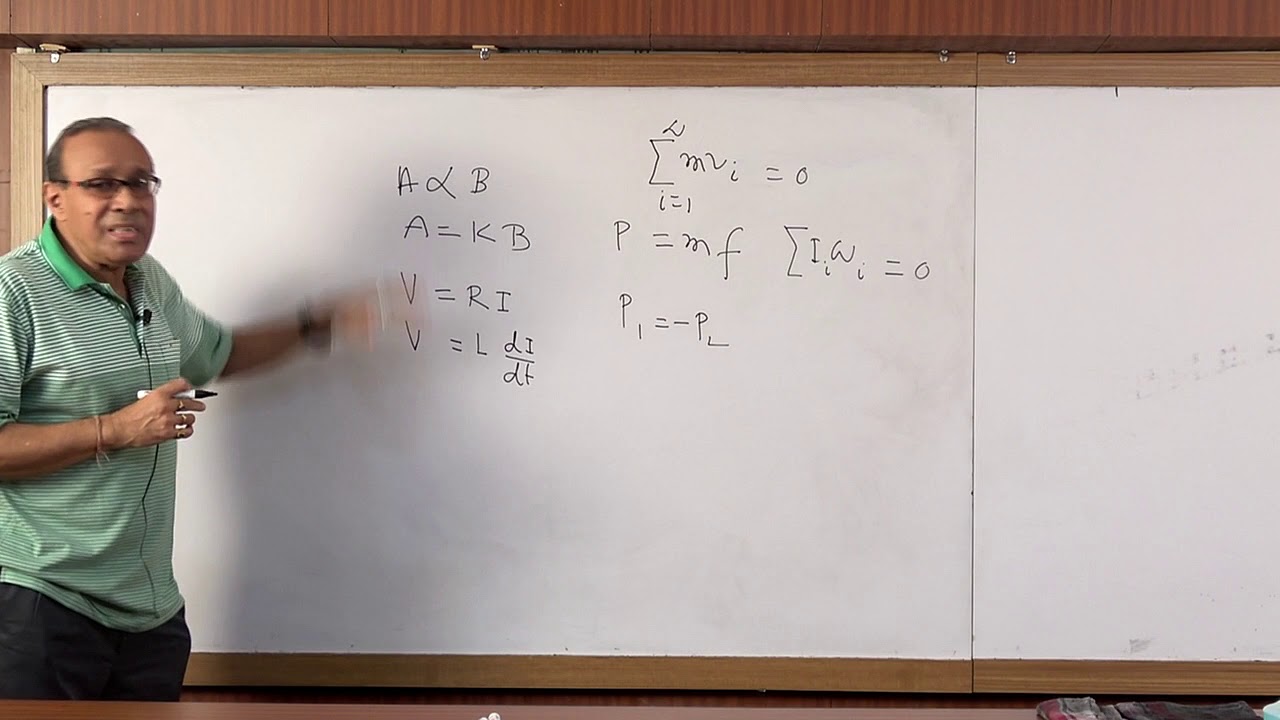 A ∝ B
A = K B
V = R I
V = L dI/dt
∑ i=1 2 m v i = 0
P = m f
∑ I i ω i = 0
P 1 = - P 2